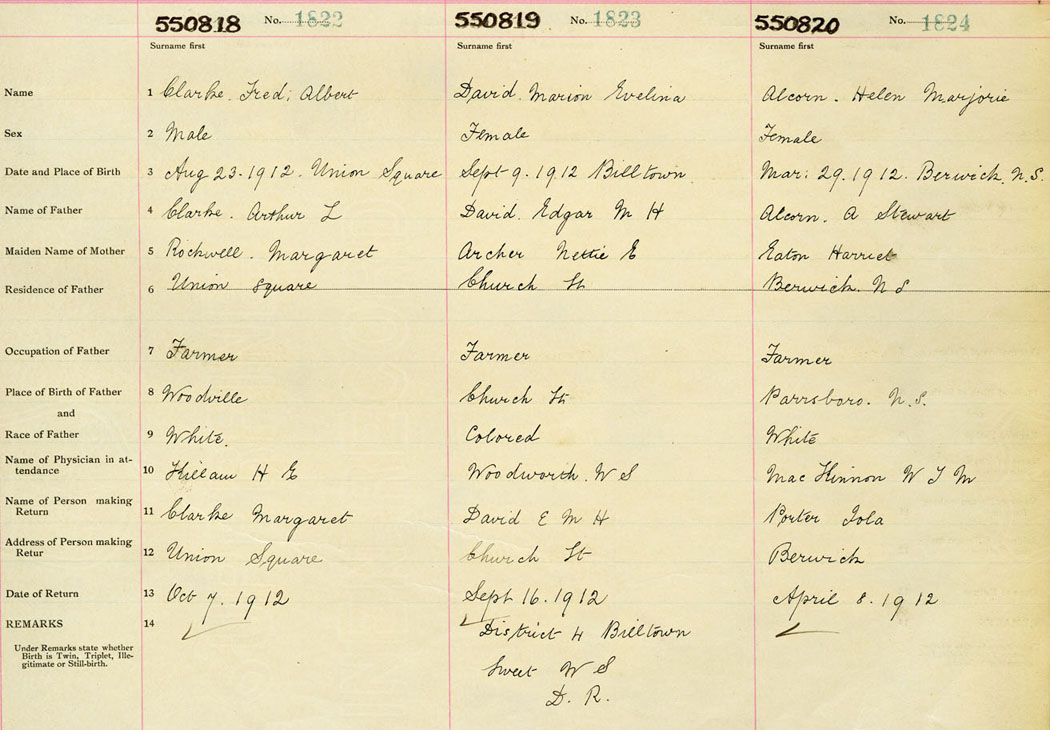 550818 No. 1822 550819 No. 1823 550820 No. 1824
Surname first Surname first Surname first
Name 1 Clarke. Fred; Albert David. Marion Evelina Alcorn. Helen Marjorie
Sex 2 Male Female Female
Date and Place of Birth 3 Aug 23. 1912. Union Square Sept 9. 1912 Billtown Mar: 29. 1912. Berwick. N.S.
Name of Father 4 Clarke. Arthur L David. Edgar M H Alcorn. A Stewart
Maiden Name of Mother 5 Rockwell. Margaret Archer Nettie E Eaton Harriet
Residence of Father 6 Union Square Church St Berwick. N S
Occupation of Father 7 Farmer Farmer Farmer
Place of Birth of Father 8 Woodville Church St Parrsboro. N.S.
and
Race of Father 9 White. Colored White
Name of Physician in at-
tendance 10 Killam H E Woodworth. W S MacKinnon W J M
Name of Person making
Return 11 Clarke Margaret David E M H Porter Iola
Address of Person making
Retur 12 Union Square Church St Berwick
Date of Return 13 Oct 7. 1912 Sept 16. 1912 April 8. 1912
REMARKS 14 District 4 Billtown
Under Remarks state whether
Birth is Twin, Triplet, Ille-
gitimate or Still-birth.
Sweet W S
D. R.